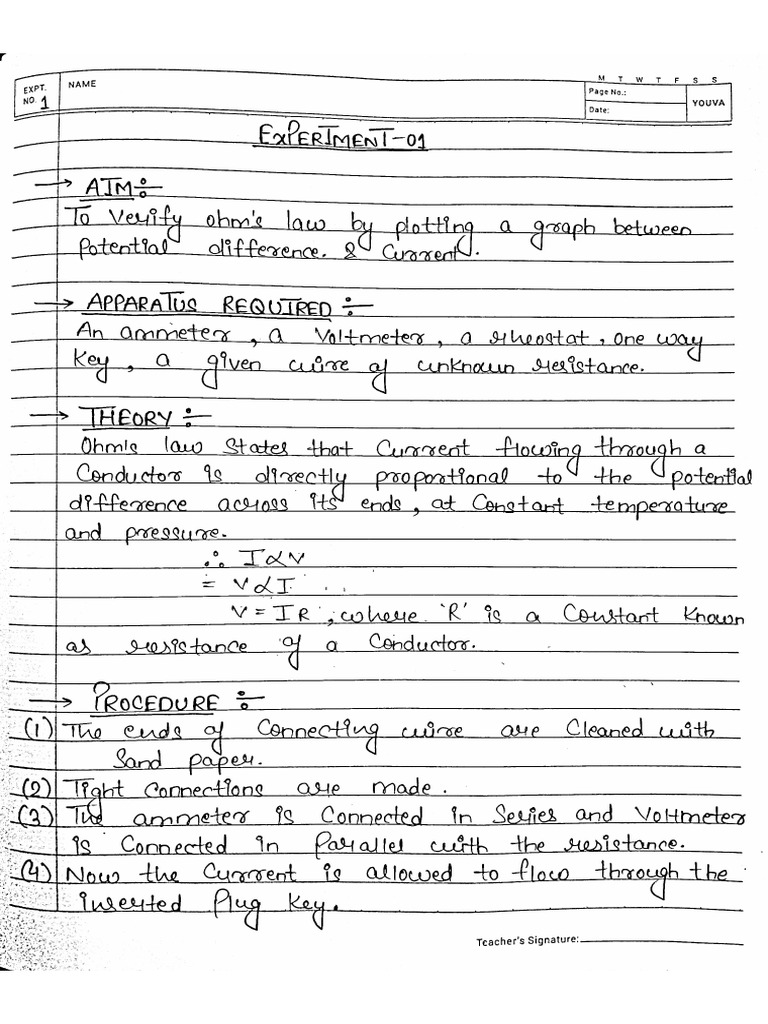 EXPT. NO. 1
NAME
M T W T F S S
Page No.:
Date:
YOUVA
EXPERIMENT-01
→ AIM:-
To Verify ohm's law by plotting a graph between
Potential difference. & Current.
→ APPARATUS REQUIRED:-
An ammeter, a Voltmeter, a rheostat, one way
Key, a given wire of unknown resistance.
→ THEORY:-
Ohm's law States that Current flowing through a
Conductor is directly proportional to the potential
difference across its ends, at Constant temperature
and pressure.
∴ I α V
= V α I
V = IR, where 'R' is a Constant Known
as resistance of a Conductor.
→ PROCEDURE:-
(1) The ends of Connecting wire are Cleaned with
Sand paper.
(2) Tight Connections are made.
(3) The ammeter is Connected in Series and Voltmeter
is Connected in Parallel with the resistance.
(4) Now the Current is allowed to flow through the
inserted Plug Key.
Teacher's Signature: